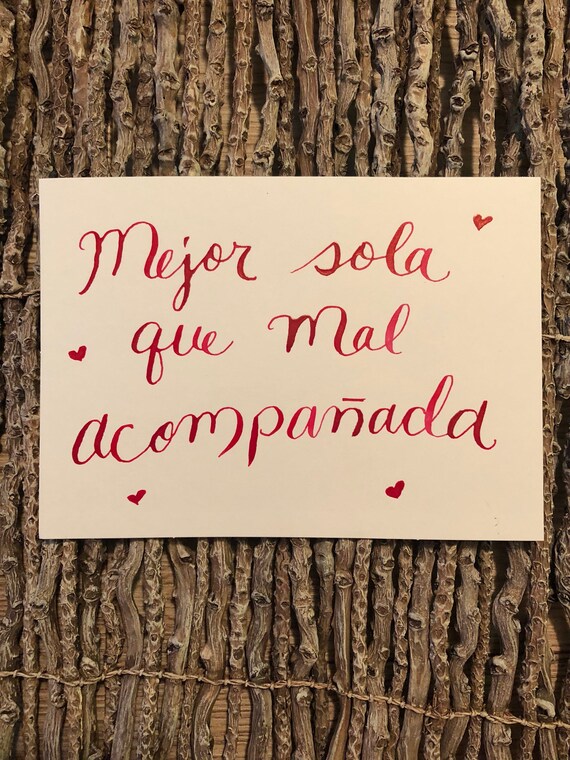 Mejor sola
que mal
acompañada